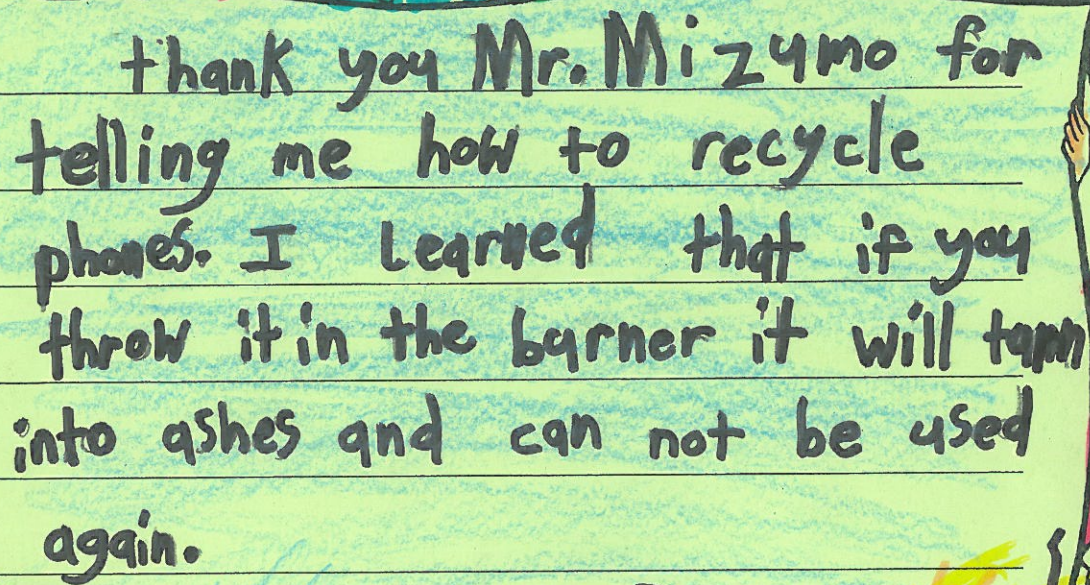 thank you Mr. Mizumo for
telling me how to recycle
phones. I learned that if you
throw it in the burner it will turn
into ashes and can not be used
again.